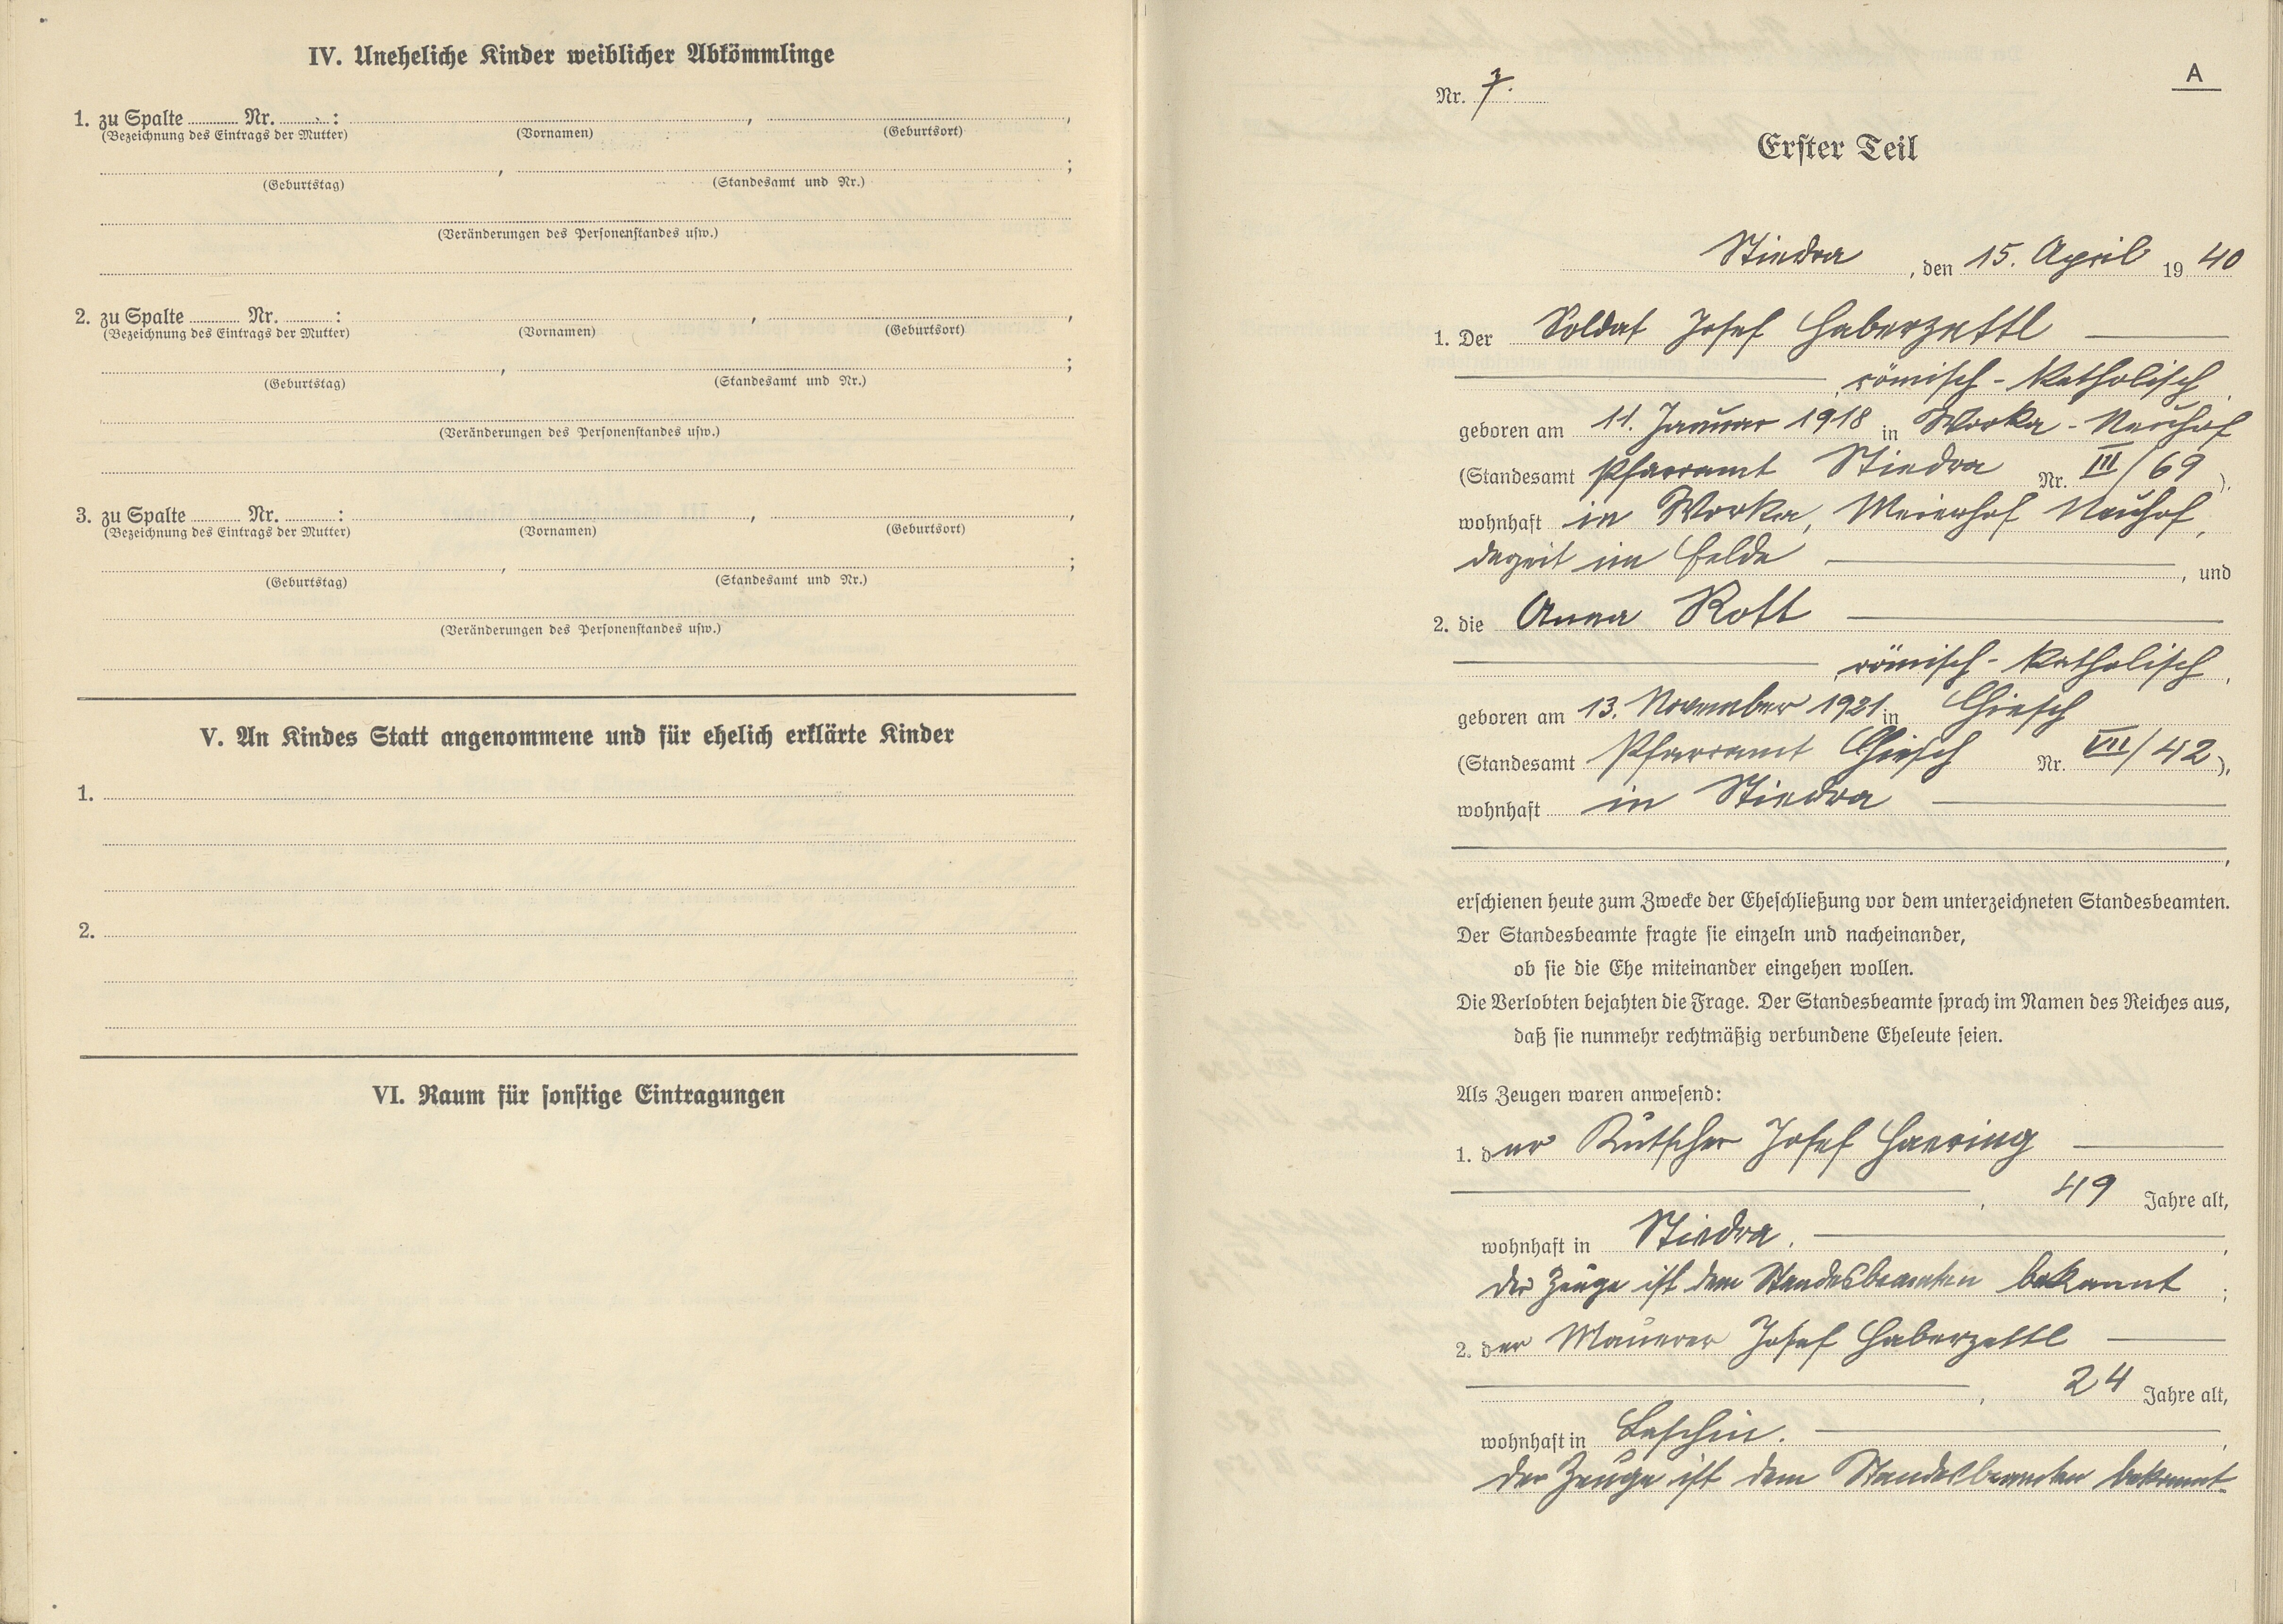 IV. Uneheliche Kinder weiblicher Abkömmlinge
1. zu Spalte ........ Nr. ........ : ........ , ........ ,
(Bezeichnung des Eintrags der Mutter) (Vornamen) (Geburtsort)
........ , ........ ;
(Geburtstag) (Standesamt und Nr.)
(Veränderungen des Personenstandes usw.)
2. zu Spalte ........ Nr. ........ : ........ , ........ ,
(Bezeichnung des Eintrags der Mutter) (Vornamen) (Geburtsort)
........ , ........ ;
(Geburtstag) (Standesamt und Nr.)
(Veränderungen des Personenstandes usw.)
3. zu Spalte ........ Nr. ........ : ........ , ........ ,
(Bezeichnung des Eintrags der Mutter) (Vornamen) (Geburtsort)
........ , ........ ;
(Geburtstag) (Standesamt und Nr.)
(Veränderungen des Personenstandes usw.)
V. An Kindes Statt angenommene und für ehelich erklärte Kinder
1.
2.
VI. Raum für sonstige Eintragungen
A
Nr. 7.
Erster Teil
Stiedra, den 15. April 1940
1. Der Soldat Josef Haberzettl
römisch-katholisch,
geboren am 11. Januar 1918 in Worka-Neuhof
(Standesamt Pfarramt Stiedra Nr. III/69),
wohnhaft in Worka, Meierhof Neuhof,
derzeit im Felde, und
2. die Anna Rott
römisch-katholisch,
geboren am 13. November 1921 in Chiesch
(Standesamt Pfarramt Chiesch Nr. VII/42),
wohnhaft in Stiedra
,
erschienen heute zum Zwecke der Eheschließung vor dem unterzeichneten Standesbeamten.
Der Standesbeamte fragte sie einzeln und nacheinander,
ob sie die Ehe miteinander eingehen wollen.
Die Verlobten bejahten die Frage. Der Standesbeamte sprach im Namen des Reiches aus,
daß sie nunmehr rechtmäßig verbundene Eheleute seien.
Als Zeugen waren anwesend:
1. der Kutscher Josef Haering
, 49 Jahre alt,
wohnhaft in Stiedra.
Der Zeuge ist dem Standesbeamten bekannt ;
2. der Maurer Josef Haberzettl
, 24 Jahre alt,
wohnhaft in Leschin.
Der Zeuge ist dem Standesbeamten bekannt.